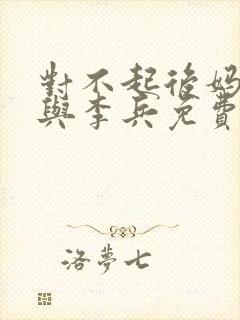 對不起後媽
與李兵免費
洛夢七